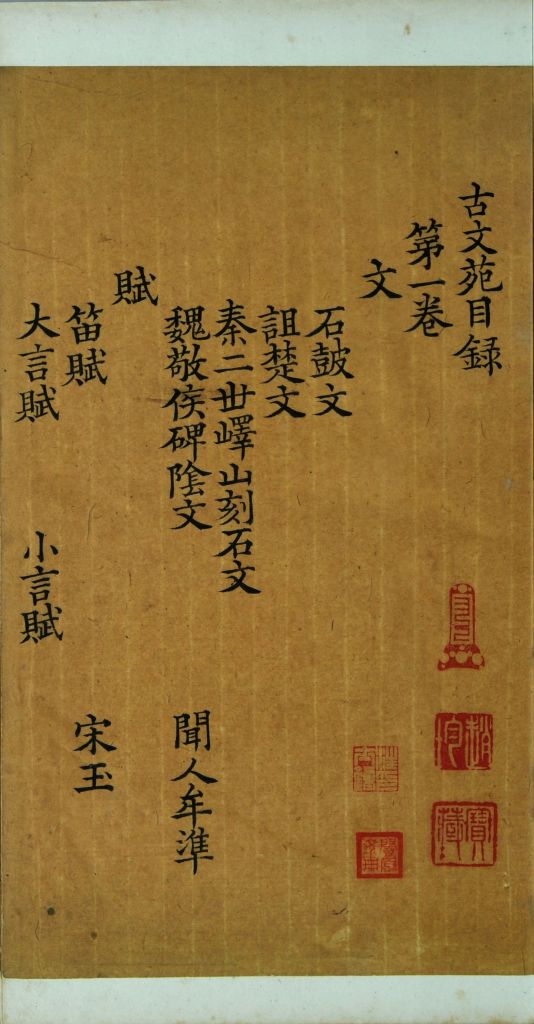 古文苑目録
第一卷
文
石皷文
詛楚文
秦二世嶧山刻石文
魏敬侯碑陰文　聞人牟準
賦
笛賦　宋玉
大言賦　小言賦
寶藏